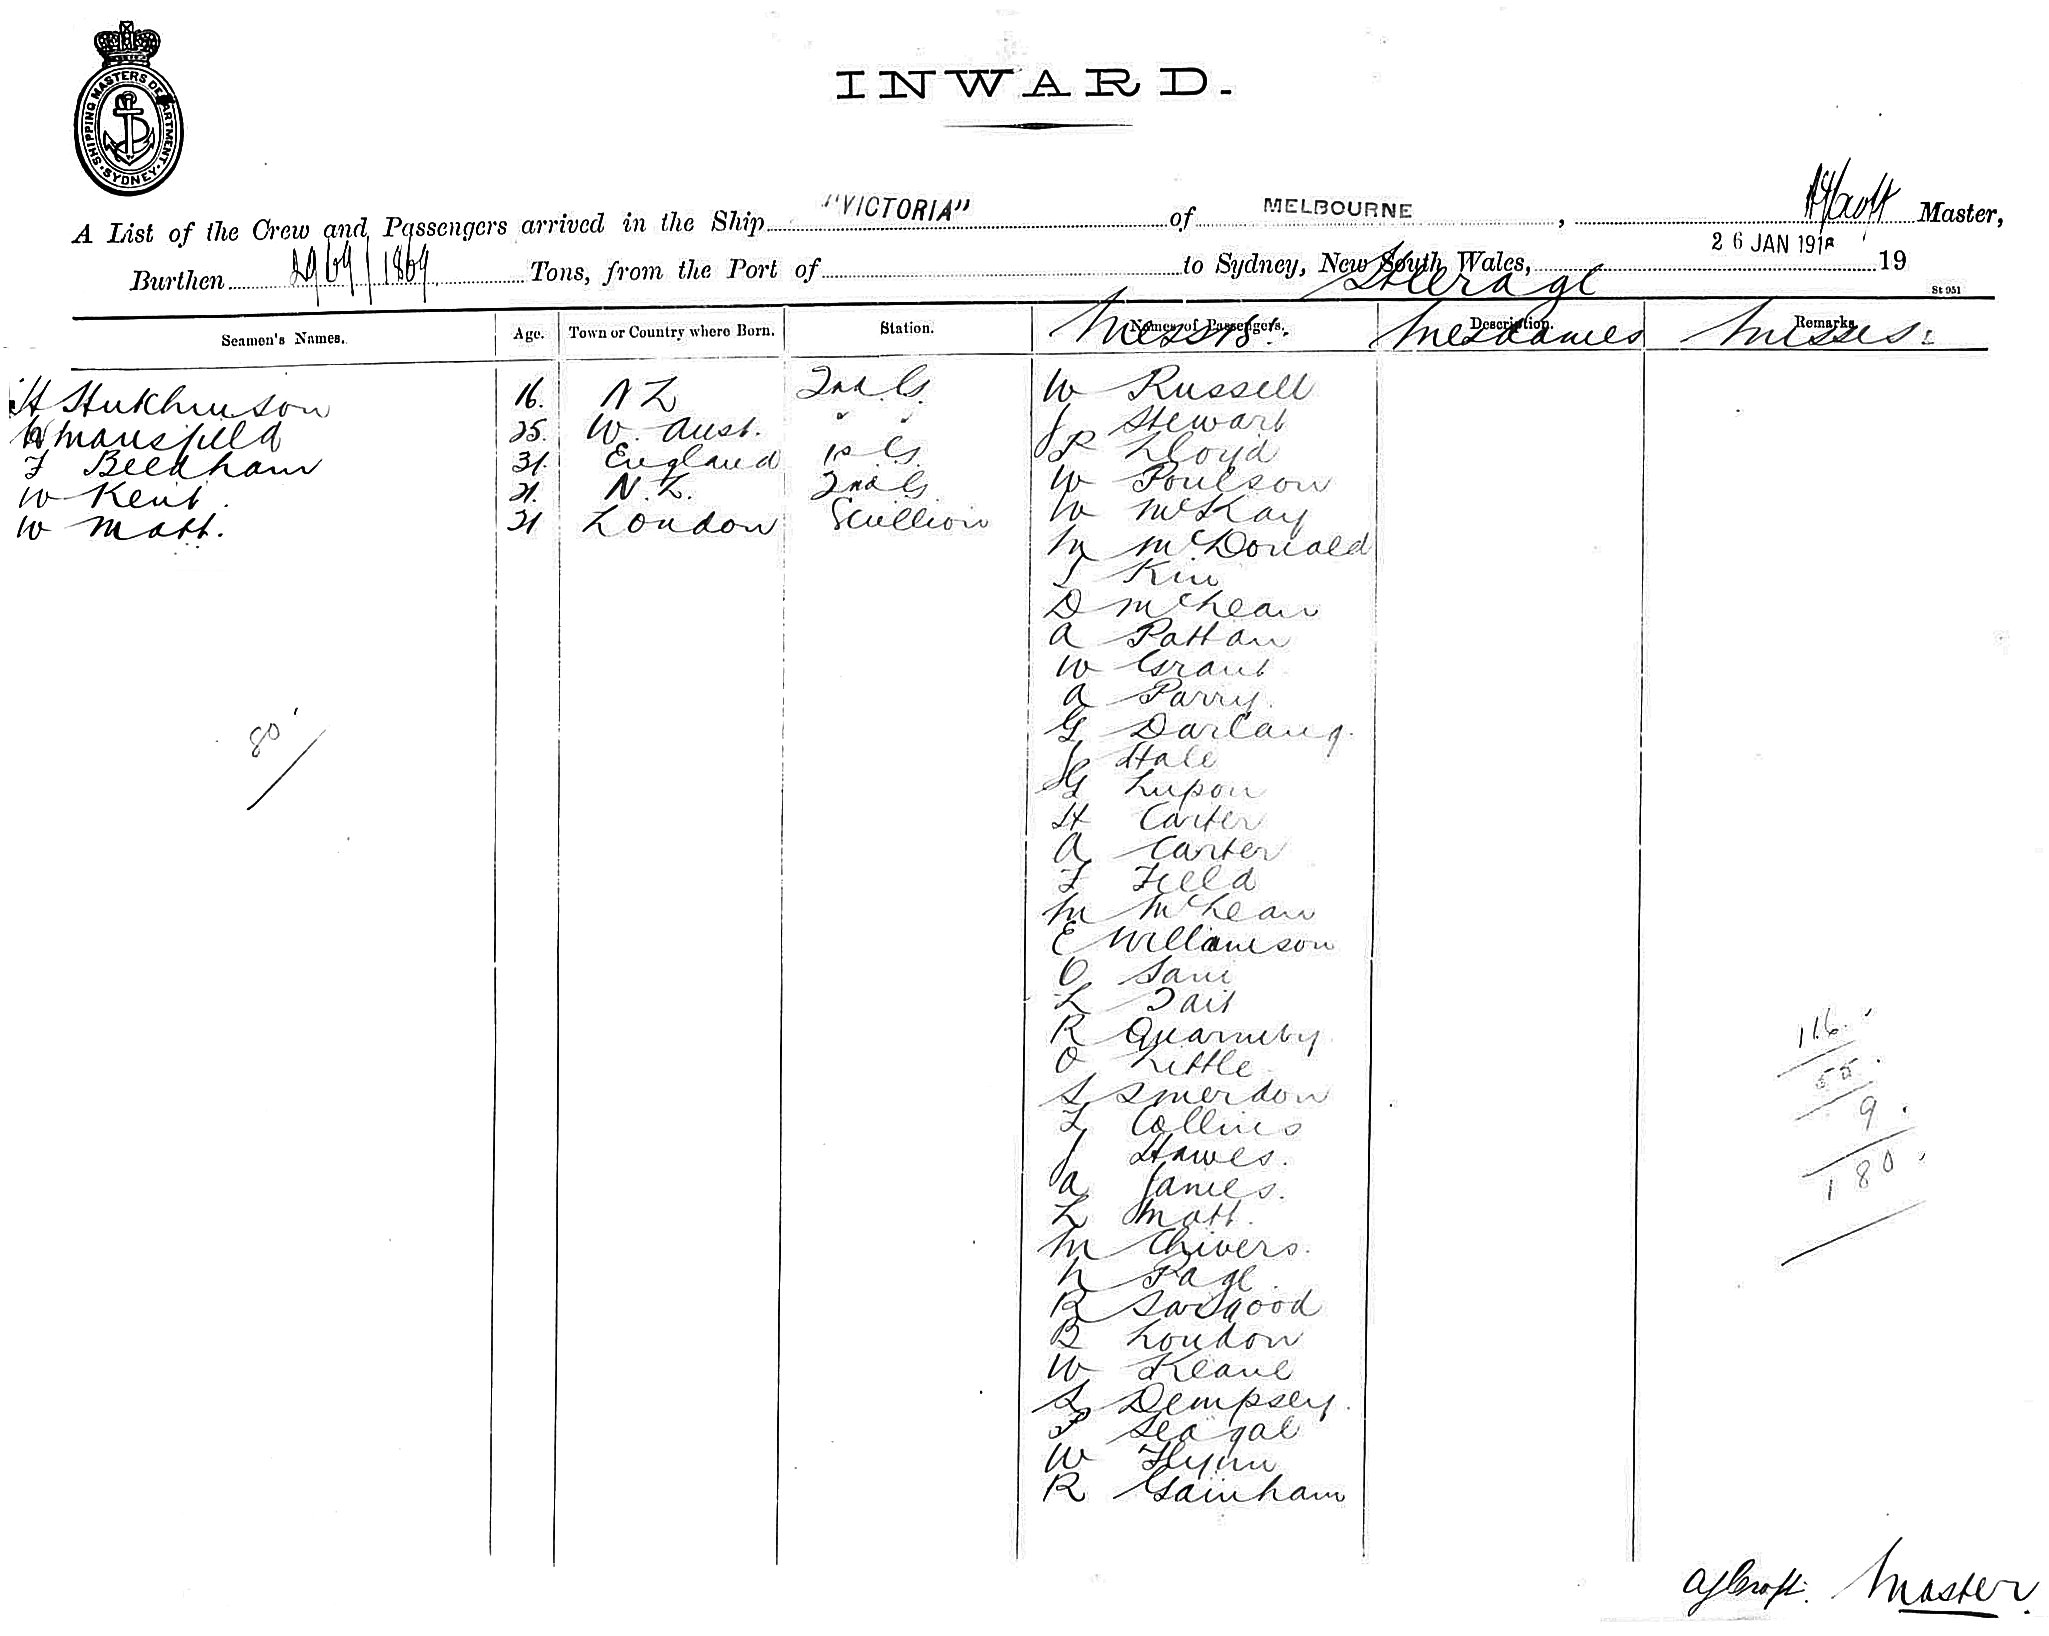 SHIPPING MASTERS DEPARTMENT · SYDNEY ·
INWARD.
A List of the Crew and Passengers arrived in the Ship "VICTORIA" of MELBOURNE, Master,
Burthen 2969/1869 Tons, from the Port of to Sydney, New South Wales, 26 JAN 191 19
Steerage
St 951
Seamen's Names. Age. Town or Country where Born. Station. Names of Passengers. Description. Remarks.
Messrs. Mesdames Misses.
H Hutchinson 16. N Z 2nd G. W Russell
W Mansfield 25. W. Aust. " " J Stewart
F Beedham 31. England 1st G. P Lloyd
W Kent. 21. N.Z. 2nd G. W Poulson
W Matt. 21 London Scullion W McKay
M McDonald
Kin
D McLean
A Pattan
W Grant
A Parry.
G Darlaug.
J Hale
G Lupon
H Carter
A Carter
F Field
M McLean
E Williamson
O Sam
L Tait
R Quarmby.
O Little
S Smerdon
L Collins
J Hawes.
A James.
L Matt.
M Chivers.
N Page.
R Sargood
B London
W Keane
S Dempsey.
P Seagal
W Flynn
R Gainham
80
116.
55.
9.
180.
A J Croft. Master.